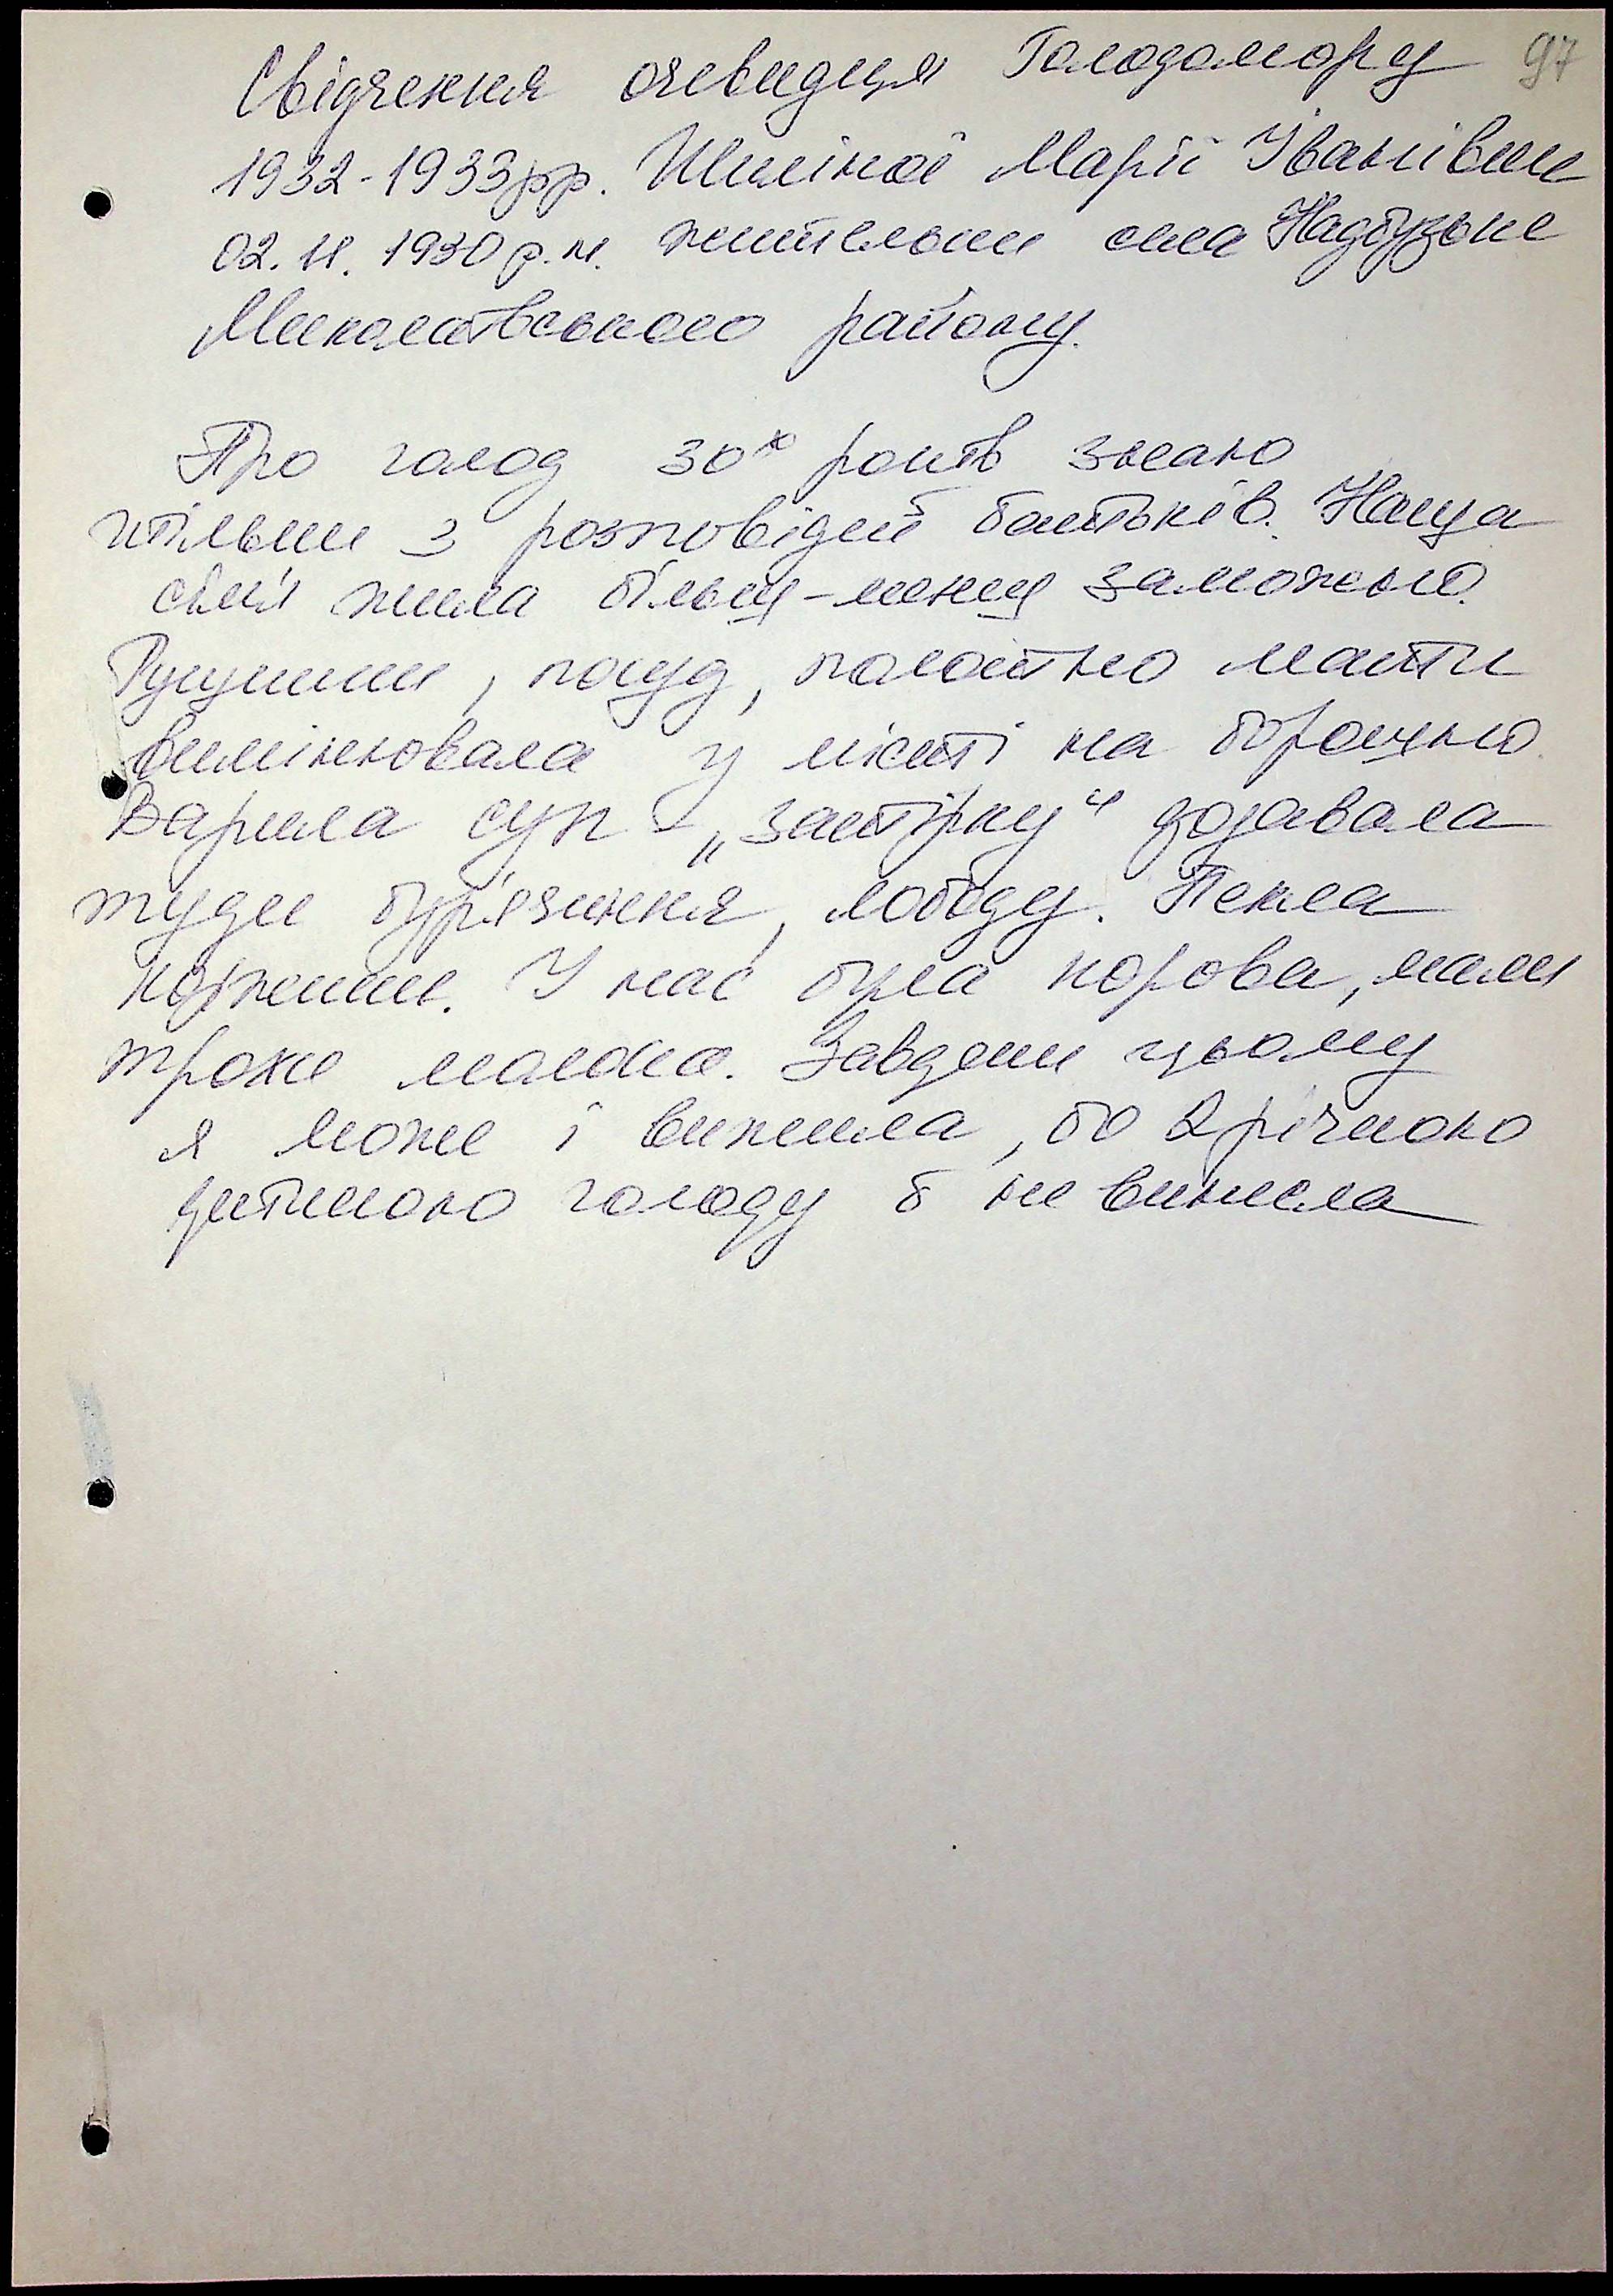 97
Свідчення очевидця Голодомору
1932-1933рр. Шиліної Марії Іванівни
02.11.1930 р.н. жительки села Надбузьке
Миколаївського району.
Про голод 30х років знаю
тільки з розповідей батьків. Наша
сім'я жила більш-менш заможньо.
Рушники, посуд, полотно мати
вимінювала у місті на борошно.
Варила суп - „затірку“ додавала
туди бур'язиння, лободу. Пекла
коржики. У нас була корова, мали
трохи молока. Завдяки цьому
я може і вижила, бо 2 річною
дитиною голоду б не винесла